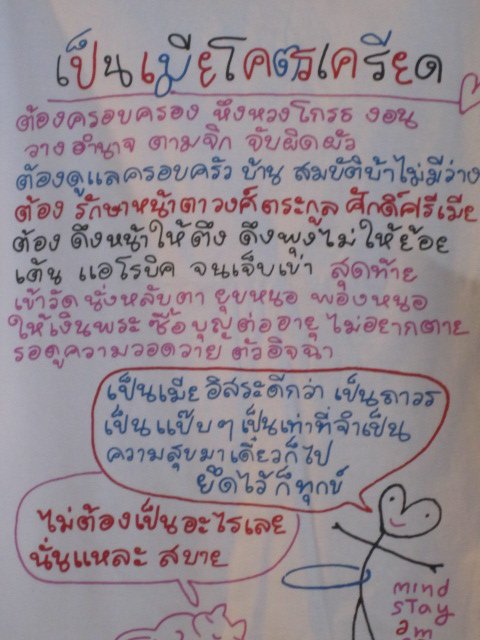 เป็นเมียโคตรเครียด
ต้องครอบครอง หึงหวงโกรธ งอน
วางอำนาจ ตามจิก จับผิดผัว
ต้องดูแลครอบครัว บ้าน สมบัติบ้าไม่มีว่าง
ต้อง รักษาหน้าตาวงศ์ตระกูล ศักดิ์ศรีเมีย
ต้อง ดึงหน้าให้ตึง ดึงพุงไม่ให้ย้อย
เต้น แอโรบิค จนเจ็บเข่า สุดท้าย
เข้าวัด นั่งหลับตา ยุบหนอ พองหนอ
ให้เงินพระ ซื้อบุญต่ออายุ ไม่อยากตาย
รอดูความวอดวาย ตัวอิจฉา
เป็นเมียอิสระดีกว่า เป็นถาวร
เป็น แป๊บๆ เป็นเท่าที่จำเป็น
ความสุขมาเดี๋ยวก็ไป
ยึดไว้ก็ทุกข์
ไม่ต้องเป็นอะไรเลย
นั่นแหละ สบาย
mind
stay
am